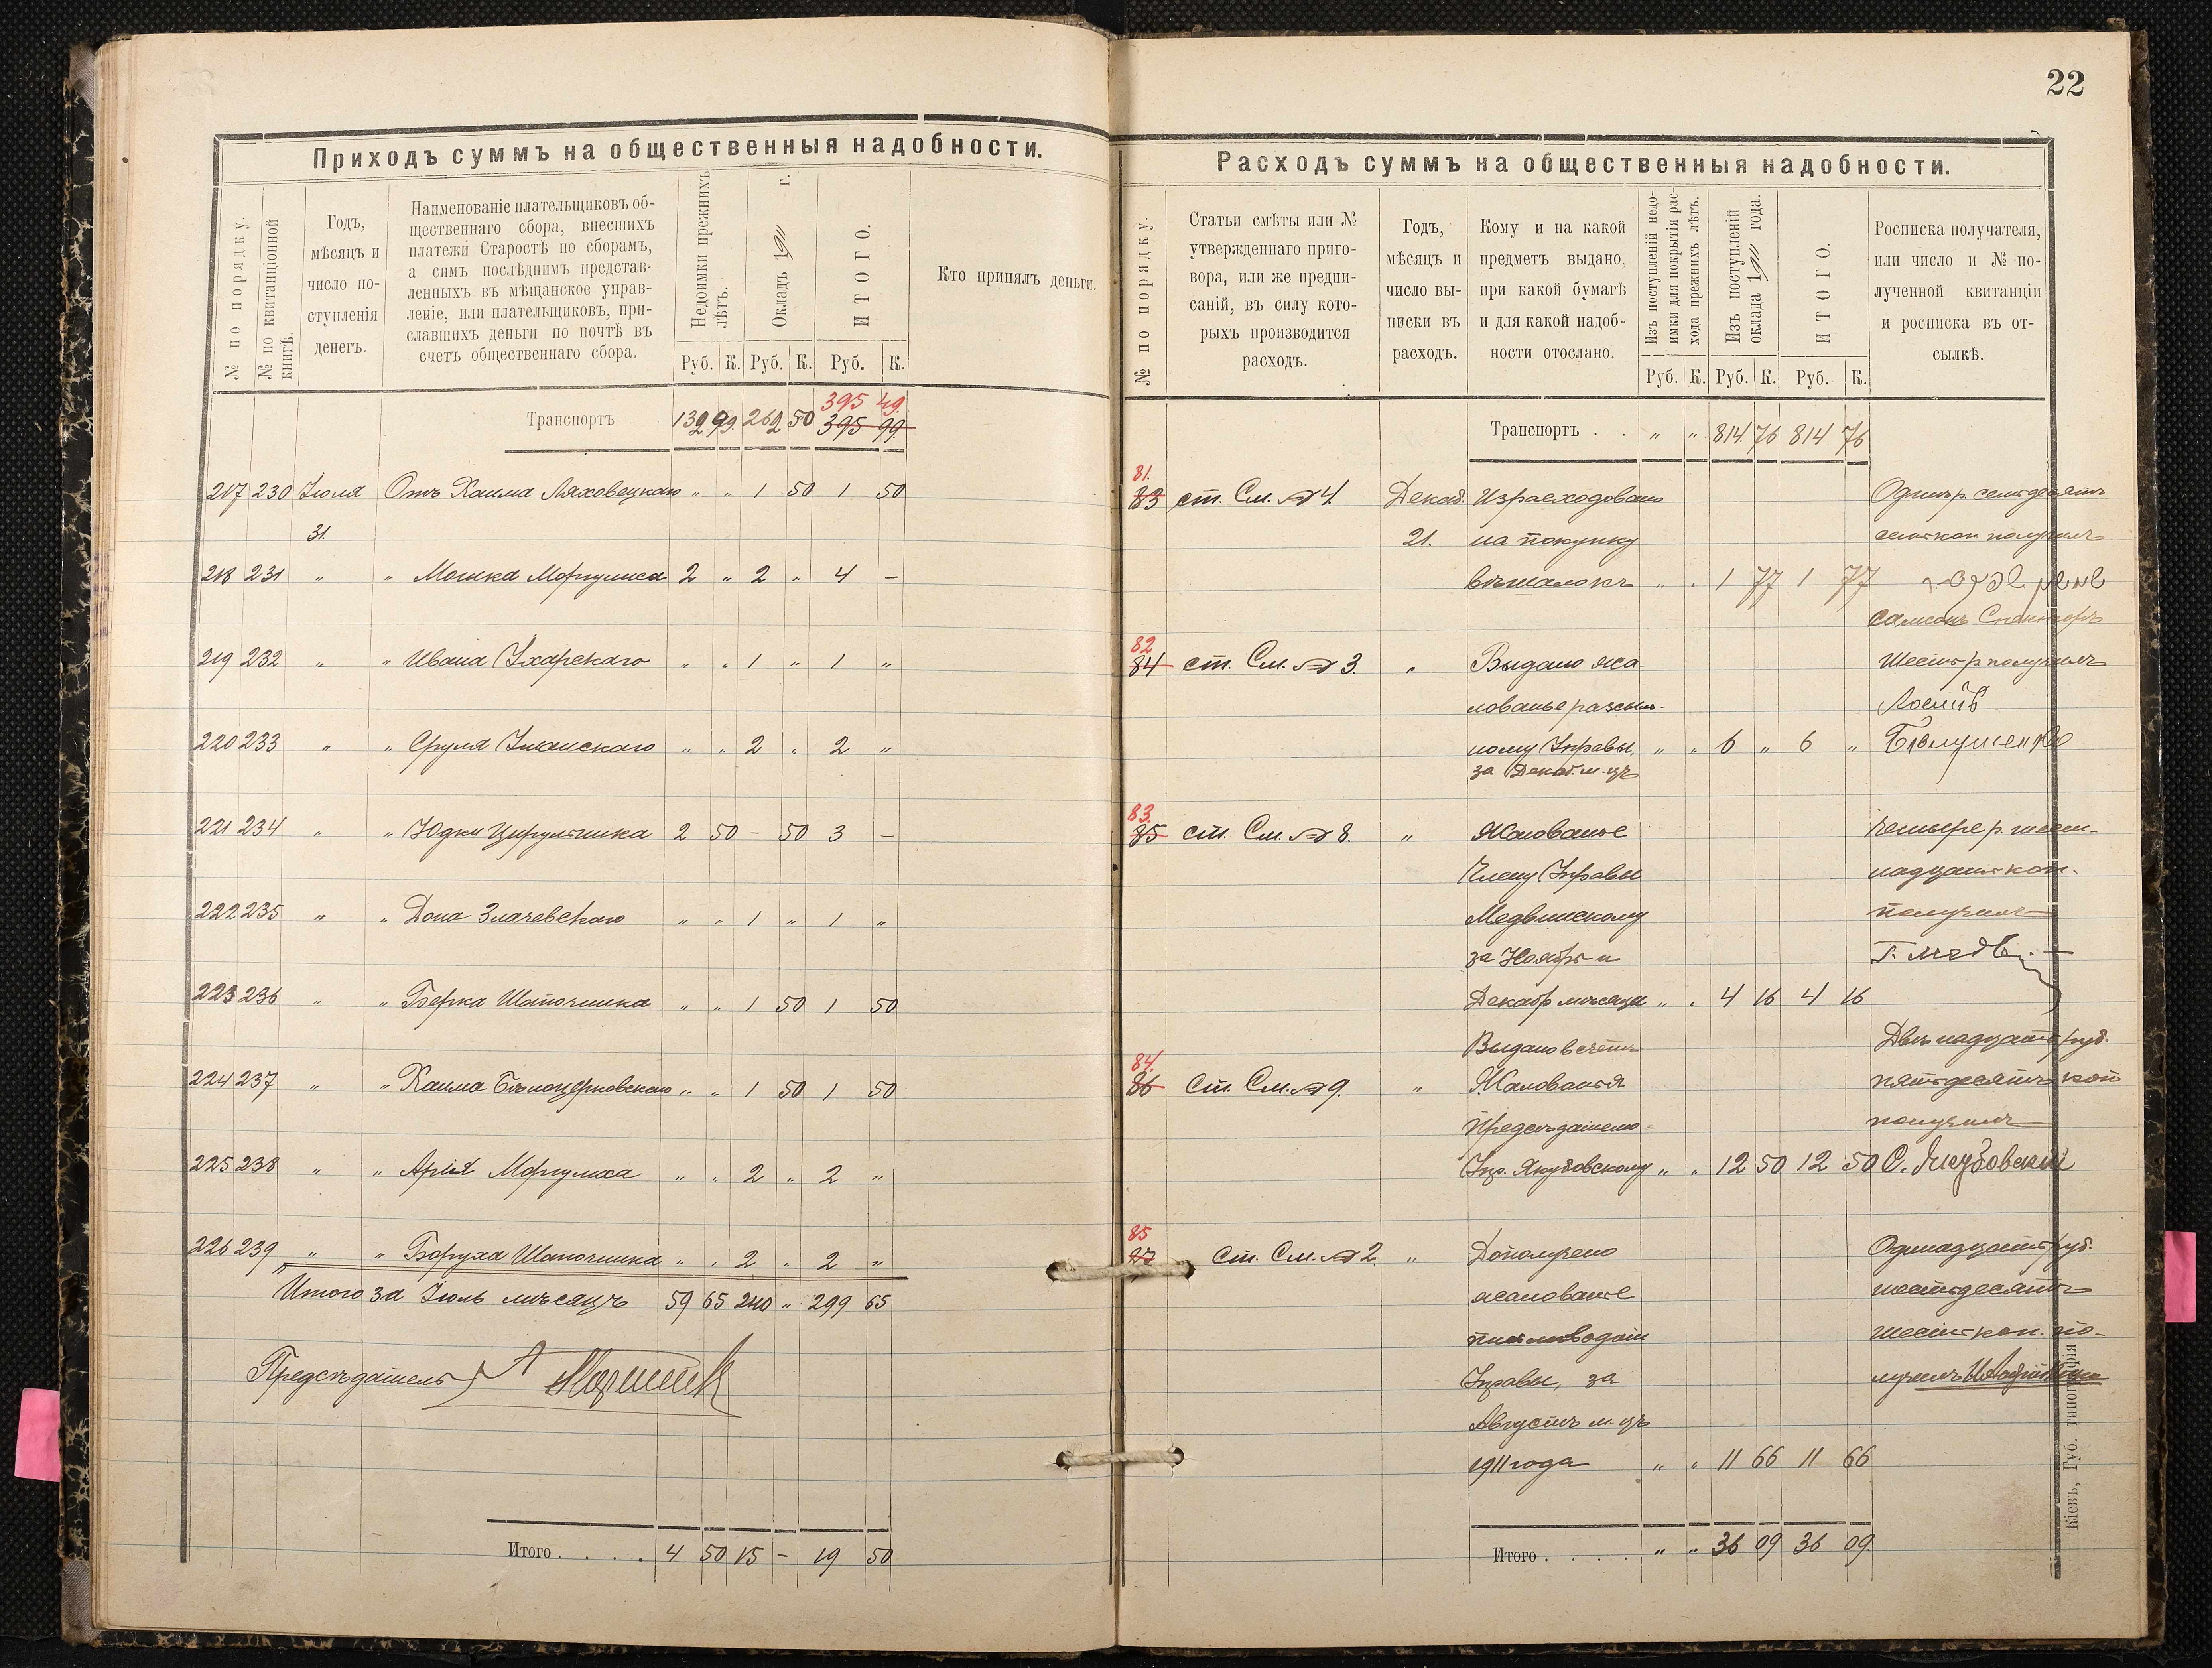 Приходъ суммъ на общественныя надобности.
№ по порядку.
№ по квитанціонной книгѣ.
Годъ,
мѣсяцъ и
число по-
ступленія
денегъ.
Наименованіе плательщиковъ об-
щественнаго сбора, внесшихъ
платежи Старостѣ по сборамъ,
а симъ послѣднимъ представ-
ленныхъ въ мѣщанское управ-
леніе, или плательщиковъ, при-
славшихъ деньги по почтѣ въ
счетъ общественнаго сбора.
Недоимки прежнихъ лѣтъ.
Окладъ 1911 г.
ИТОГО.
Кто принялъ деньги.
Руб. К. Руб. К. Руб. К.
395 49.
Транспортъ 132 99. 262 50 395 99.
217 230 Іюля Отъ Хаима Ляховецкаго " " 1 50 1 50
31.
218 231 " " Мошка Моргулиса 2 " 2 " 4 —
219 232 " " Ивана Ухарскаго " " 1 " 1 "
220 233 " " Сруля Уманскаго " " 2 " 2 "
221 234 " " Юдки Цирульника 2 50 – 50 3 –
222 235 " " Дона Злочевскаго " " 1 " 1 "
223 236 " " Берка Шапочника " " 1 50 1 50
224 237 " " Хаима Бѣлоцерковскаго " " 1 50 1 50
225 238 " " Арія Моргулиса " " 2 " 2 "
226 239 " " Боруха Шапочника " " 2 " 2 "
Итого за Іюль мѣсяцъ 59 65 240 " 299 65
Предсѣдатель
Итого . . . . 4 50 15 – 19 50
22
Расходъ суммъ на общественныя надобности.
№ по порядку.
Статьи смѣты или №
утвержденнаго приго-
вора, или же предпи-
саній, въ силу кото-
рыхъ производится
расходъ.
Годъ,
мѣсяцъ и
число вы-
писки въ
расходъ.
Кому и на какой
предметъ выдано,
при какой бумагѣ
и для какой надоб-
ности отослано.
Изъ поступленій недо-
имки для покрытія рас-
хода прежнихъ лѣтъ.
Изъ поступленій
оклада 1911 года.
ИТОГО.
Росписка получателя,
или число и № по-
лученной квитанціи
и росписка въ от-
сылкѣ.
Руб. К. Руб. К. Руб. К.
Транспортъ . . " " 814. 76 814 76
81.
83 ст. См. № 4. Декаб. Израсходовано Одинъ р. семьдесятъ
21. на покупку семь коп получилъ
вѣшалокъ " " 1 77 1 77
Самсонъ
82
84 ст. См. № 3. " Выдано жа- Шесть р получилъ
лованье разсыль-
ному Управы " " 6 " 6 "
за Декаб. м-цъ
83.
85 ст. См. № 8. " Жалованье Четыре р. шест-
Члену Управы надцать коп.
Медвинскому получилъ
за Ноябрь и
Декабр мѣсяца " " 4 16 4 16
Выдано въ счетъ Двѣнадцать руб.
84.
86 ст. См. № 9. " Жалованья пятьдесятъ коп
Предсѣдателю получилъ
Упр. Якубовскому " " 12 50 12 50 С. Якубовскій
85
87 ст. См. № 2. " Дополучено Одинадцать руб.
жалованье шестьдесятъ
письмоводит шесть коп. по-
Управы, за лучилъ
Августъ м-цъ
1911 года " " 11 66 11 66
Итого . . . . . " " 36 09 36 09.
Кіевъ, Губ. типографія